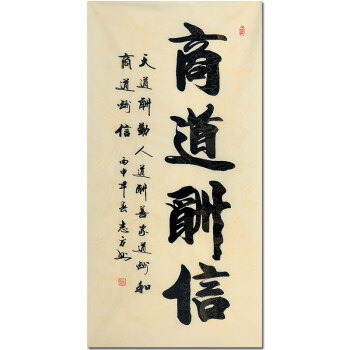 商道酬信
天道酬勤人道酬善家道酬和
商道酬信 丙申年